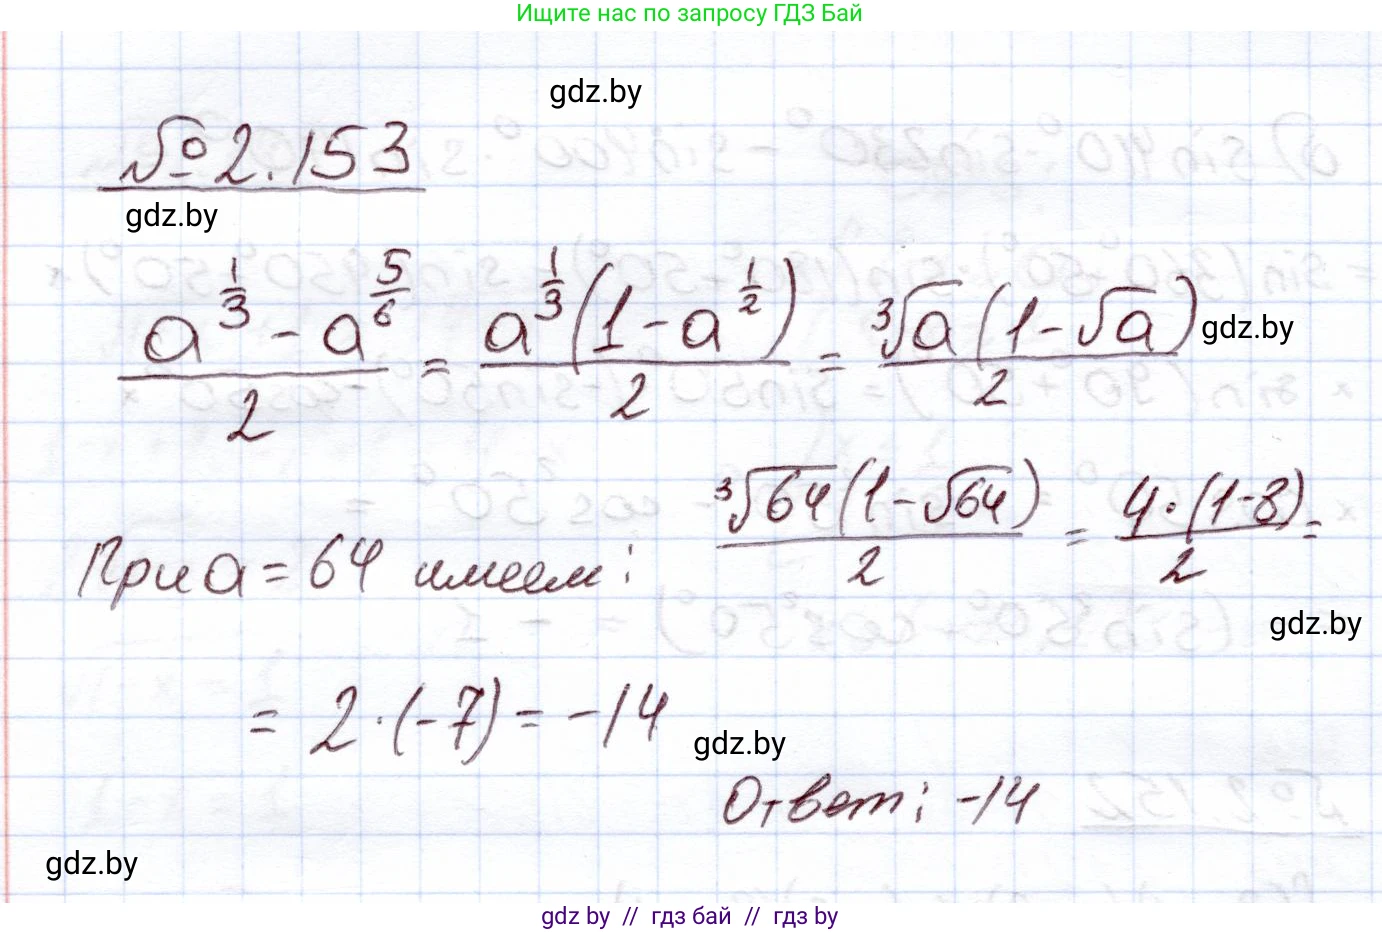 Ищите нас по запросу ГДЗ Бай
gdz.by
№ 2.153
gdz.by
(a^(1/3) - a^(5/6))/2 = (a^(1/3)(1 - a^(1/2)))/2 = (∛a(1 - √a))/2
gdz.by
При a = 64 имеем: (∛64(1 - √64))/2 = (4·(1-8))/2 =
gdz.by
= 2·(-7) = -14
gdz.by
Ответ: -14
gdz.by
gdz by // гдз бай // гдз by